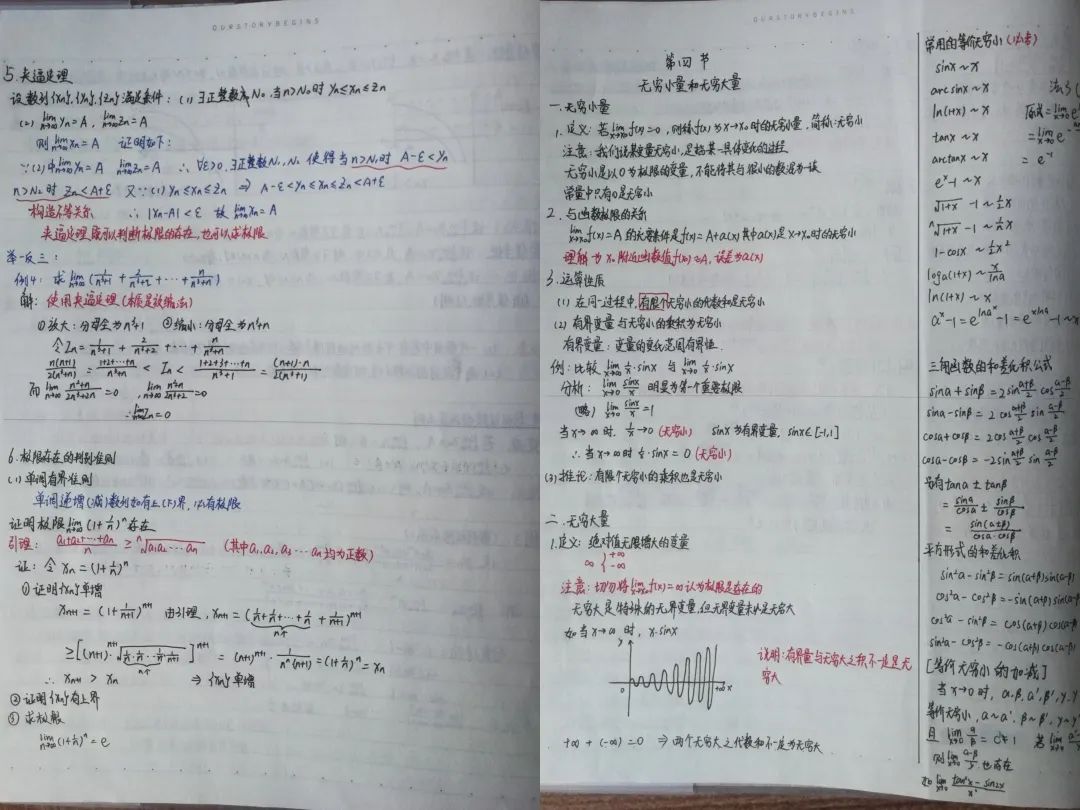 OURSTORYBEGINS
5. 夹逼定理
设数列{Xn}, {Yn}, {Zn}满足条件: (1) ∃正整数N₀, 当n>N₀时 Yn≤Xn≤Zn
(2) lim n→∞ Yn = A, lim n→∞ Zn = A
则 lim n→∞ Xn = A 证明如下:
∵(2)中 lim n→∞ Yn = A lim n→∞ Zn = A ∴ ∀ε>0, ∃正整数N₁, N₂ 使得当n>N₁时 A-ε<Yn
n>N₂时 Zn<A+ε 又∵(1) Yn≤Xn≤Zn ⇒ A-ε<Yn≤Xn≤Zn<A+ε
构造不等关系 ∴ |Xn-A|<ε 故 lim n→∞ Xn = A
夹逼定理既可以判断极限的存在, 也可以求极限
举一反三:
例4: 求 lim n→∞ (1/(n²+1) + 2/(n²+2) + ⋯ + n/(n²+n))
解: 使用夹逼定理(本质是放缩法)
①放大: 分母全为n²+1 ②缩小: 分母全为n²+n
令Zn = 1/(n²+1) + 2/(n²+2) + ⋯ + n/(n²+n)
n(n+1)/2(n²+n) = (1+2+⋯+n)/(n²+n) < Zn < (1+2+3+⋯+n)/(n²+1) = (n+1)·n/2(n²+1)
而 lim n→∞ (n²+n)/(2n²+2n) = 0, lim n→∞ (n²+n)/(2n²+2) = 0
∴ lim n→∞ Zn = 0
6. 极限存在的判别准则
(1) 单调有界准则
单调递增(减)数列如有上(下)界, 必有极限
证明极限 lim n→∞ (1+1/n)ⁿ 存在
引理: (a₁+a₂+⋯+an)/n ≥ ⁿ√(a₁a₂⋯an) (其中a₁, a₂, a₃⋯an均为正数)
证: 令 Xn = (1+1/n)ⁿ
①证明{Xn}单增
Xn+1 = (1+1/(n+1))ⁿ⁺¹ 由引理, Xn+1 = (1/n+1/n+⋯+1/n + 1/(n+1))ⁿ⁺¹
n个
≥[(n+1)· ⁿ⁺¹√(1/n·1/n⋯1/n·1/(n+1))]ⁿ⁺¹ = (n+1)ⁿ⁺¹ · 1/(nⁿ(n+1)) = (1+1/n)ⁿ = Xn
n个
∴ Xn+1 > Xn ⇒ {Xn}单增
②证明{Xn}有上界
③求极限
lim n→∞ (1+1/n)ⁿ = e
OURSTORYBEGINS
第四节
无穷小量和无穷大量
一. 无穷小量
1. 定义: 若 lim x→x₀ f(x) = 0, 则称f(x)为x→x₀时的无穷小量, 简称: 无穷小
注意: 我们说某变量无穷小, 是指某一具体变化的过程
无穷小是以0为极限的变量, 不能将其与很小的数混为一谈
常量中只有0是无穷小
2. 与函数极限的关系
lim x→x₀ f(x) = A 的充要条件是f(x) = A+α(x) 其中α(x)是x→x₀时的无穷小
理解为x₀附近函数值f(x)≈A, 误差为α(x)
3. 运算性质
(1) 在同一过程中, 有限个无穷小的代数和是无穷小
(2) 有界变量与无穷小的乘积为无穷小
有界变量: 变量的变化范围有界性.
例: 比较 lim x→0 1/x·sinx 与 lim x→∞ 1/x·sinx
分析: lim x→0 sinx/x 明显为第一个重要极限
(略) lim x→0 sinx/x = 1
当x→∞时, 1/x→0 (无穷小) sinx为有界变量, sinx∈[-1,1]
∴ 当x→∞时 1/x·sinx = 0 (无穷小)
(3) 推论: 有限个无穷小的乘积也是无穷小
二. 无穷大量
1. 定义: 绝对值无限增大的变量
∞ { +∞ -∞
注意: 切勿将 lim x→x₀ f(x) = ∞ 认为极限是存在的
无穷大是特殊的无界变量, 但无界变量未必是无穷大
如当x→∞时, x·sinx
y
0 +∞ x
说明: 有界量与无穷大之积不一定是无穷大
+∞ + (-∞) = 0 ⇒ 两个无穷大之代数和不一定为无穷大
常用的等价无穷小(必考)
sinx ~ x
arcsinx ~ x
ln(1+x) ~ x
tanx ~ x
arctanx ~ x
eˣ-1 ~ x
√(1+x) -1 ~ 1/2 x
ⁿ√(1+x) -1 ~ 1/n x
1-cosx ~ 1/2 x²
loga(1+x) ~ x/lna
ln(1+x) ~ x
aˣ-1 = e^(lnaˣ) -1 = e^(xlna) -1 ~
法3
原式 = lim x→0 e
= lim x→0 e
= e⁻¹
三角函数的和差化积公式
sinα+sinβ = 2sin (α+β)/2 cos (α-β)/2
sinα-sinβ = 2cos (α+β)/2 sin (α-β)/2
cosα+cosβ = 2cos (α+β)/2 cos (α-β)/2
cosα-cosβ = -2sin (α+β)/2 sin (α-β)/2
另有tanα ± tanβ
= sinα/cosα ± sinβ/cosβ
= sin(α±β)/cosαcosβ
平方形式的和差化积
sin²α-sin²β = sin(α+β)sin(α-β)
cos²α-cos²β = -sin(α+β)sin(α-β)
cos²α-sin²β = cos(α+β)cos(α-β)
sin²α-cos²β = -cos(α+β)cos(α-β)
[等价无穷小的加减]
当x→0时, α, β, α', β', γ, γ'
等价无穷小, α~α'. β~β', γ~γ'
且 lim x→0 α/β = C≠1 若 lim x→0
则 lim x→0 (α-β)/γ 也存在
如 lim x→0 (tan²x-sin2x)/x